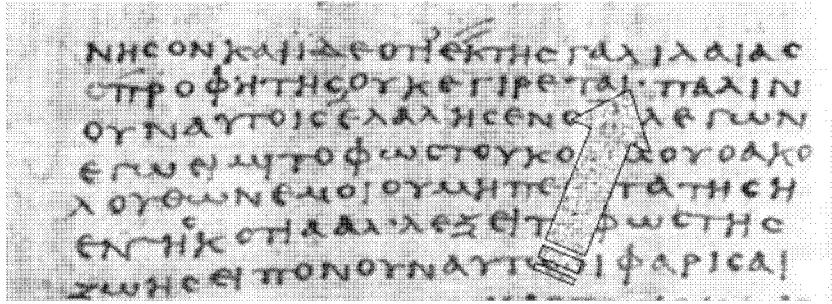 ΝΗCΟΝΚΑΙΙΔΕΟΤΙΕΚΤΗCΓΑΛΙΛΑΙΑC
ΟΠΡΟΦΗΤΗCΟΥΚΕΓΙΡΕΤΑΙ·ΠΑΛΙΝ
ΟΥΝΑΥΤΟΙCΕΛΑΛΗCΕΝΟ ΛΕΓΩΝ
ΕΓΩΕΙΜΙΤΟΦΩCΤΟΥΚΟ ΟΥΟΑΚΟ
ΛΟΥΘΩΝΕΜΟΙΟΥΜΗΠΕ ΤΑΤΗCΗ
ΕΝΤΗCΚΟΤΙΑΑΛ·ΛΕΞΕΙΤ ΦΩCΤΗC
ΖΩΗCΕΙΠΟΝΟΥΝΑΥΤΩ ΙΦΑΡΙCΑΙ